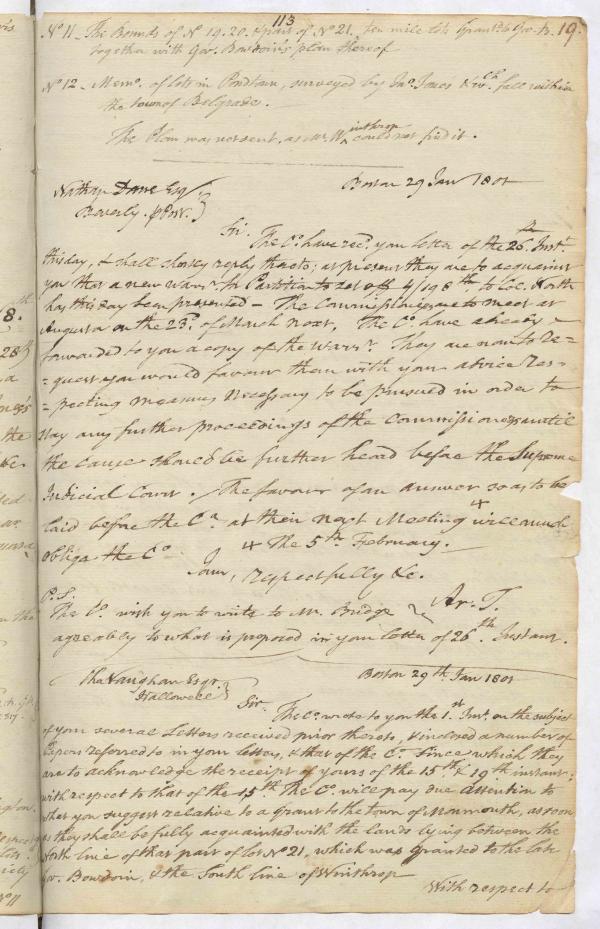 113
19.
No 11 _ The Bounds of No 19. 20. & part of No 21. ten mile lots Grant to Gov. B.
together with Gov. Bowdoin's plan thereof
No 12 _ Memo. of lots in Pondtown, surveyed by Jno. Jones &c wch. fall within
the town of Belgrade.
The Plan was not sent, as Mr. Winthrop could not find it.
Boston 29 Jan 1801
Nathan Dane Esqr
Beverly. p Post.
Sir. The Co. have recd. your letter of the 26. Inst.
this day, & shall shortly reply thereto; at present they are to acquaint
you that a new Warrt. for Partition to set off 4/198th to Coc. North
has this day been presented – The Commissioners are to meet at
Augusta on the 23d. of March next. The Co. have already
forwarded to you a copy of the Warrt. They are now to re=
=quest you would favour them with your advice res=
=pecting measures necessary to be pursued in order to
stay any further proceedings of the Commissioners until
the cause should be further heard before the Supreme
Judicial Court. The favour of an answer so as to be
laid before the Co. at their next Meeting + will much
oblige the Co. + The 5th February.
I am, respectfully &c.
Ar. T.
P.S.
The Co. wish you to write to Mr. Bridge
agreeably to what is proposed in your letter of 26th Instant.
Boston 29th Jan 1801
Chas Vaughan Esqr
Hallowell
Sir The Co. wrote to you the 1st Inst. on the subject
of your several Letters received prior thereto, & inclosed a number of
Papers referred to in your letters, & that of the Co. Since which they
are to acknowledge the receipt of yours of the 15th & 19th instant.
with respect to that of the 15th. The Co. will pay due attention to
what you suggest relative to a grant to the town of Monmouth, as soon
as they shall be fully acquainted with the lands lying between the
North line of that part of lot No 21, which was granted to the late
Gov. Bowdoin, & the South line of Winthrop
With respect to